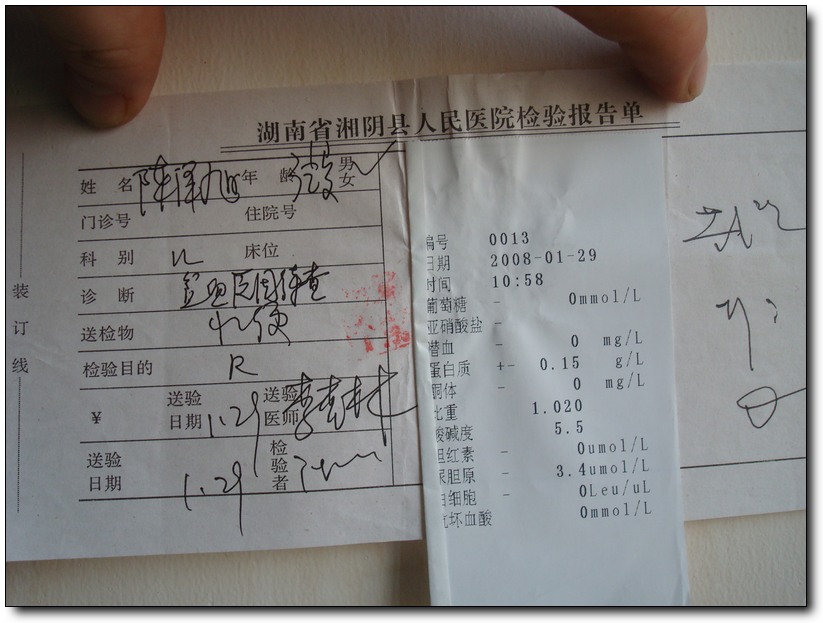 湖南省湘阴县人民医院检验报告单
姓 名 陈泽旭 年 龄 岁 男 女
门诊号 住院号
科 别 床位
诊 断 待查
送检物
检验目的 R
¥ 送验日期 1.29 送验医师 李
送验日期 1.29 检验者
装 订 线
编号 0013
日期 2008-01-29
时间 10:58
葡萄糖 - 0mmol/L
亚硝酸盐 -
潜血 - 0 mg/L
蛋白质 +- 0.15 g/L
酮体 - 0 mg/L
比重 1.020
酸碱度 5.5
胆红素 - 0umol/L
尿胆原 - 3.4umol/L
白细胞 - 0Leu/uL
抗坏血酸 0mmol/L